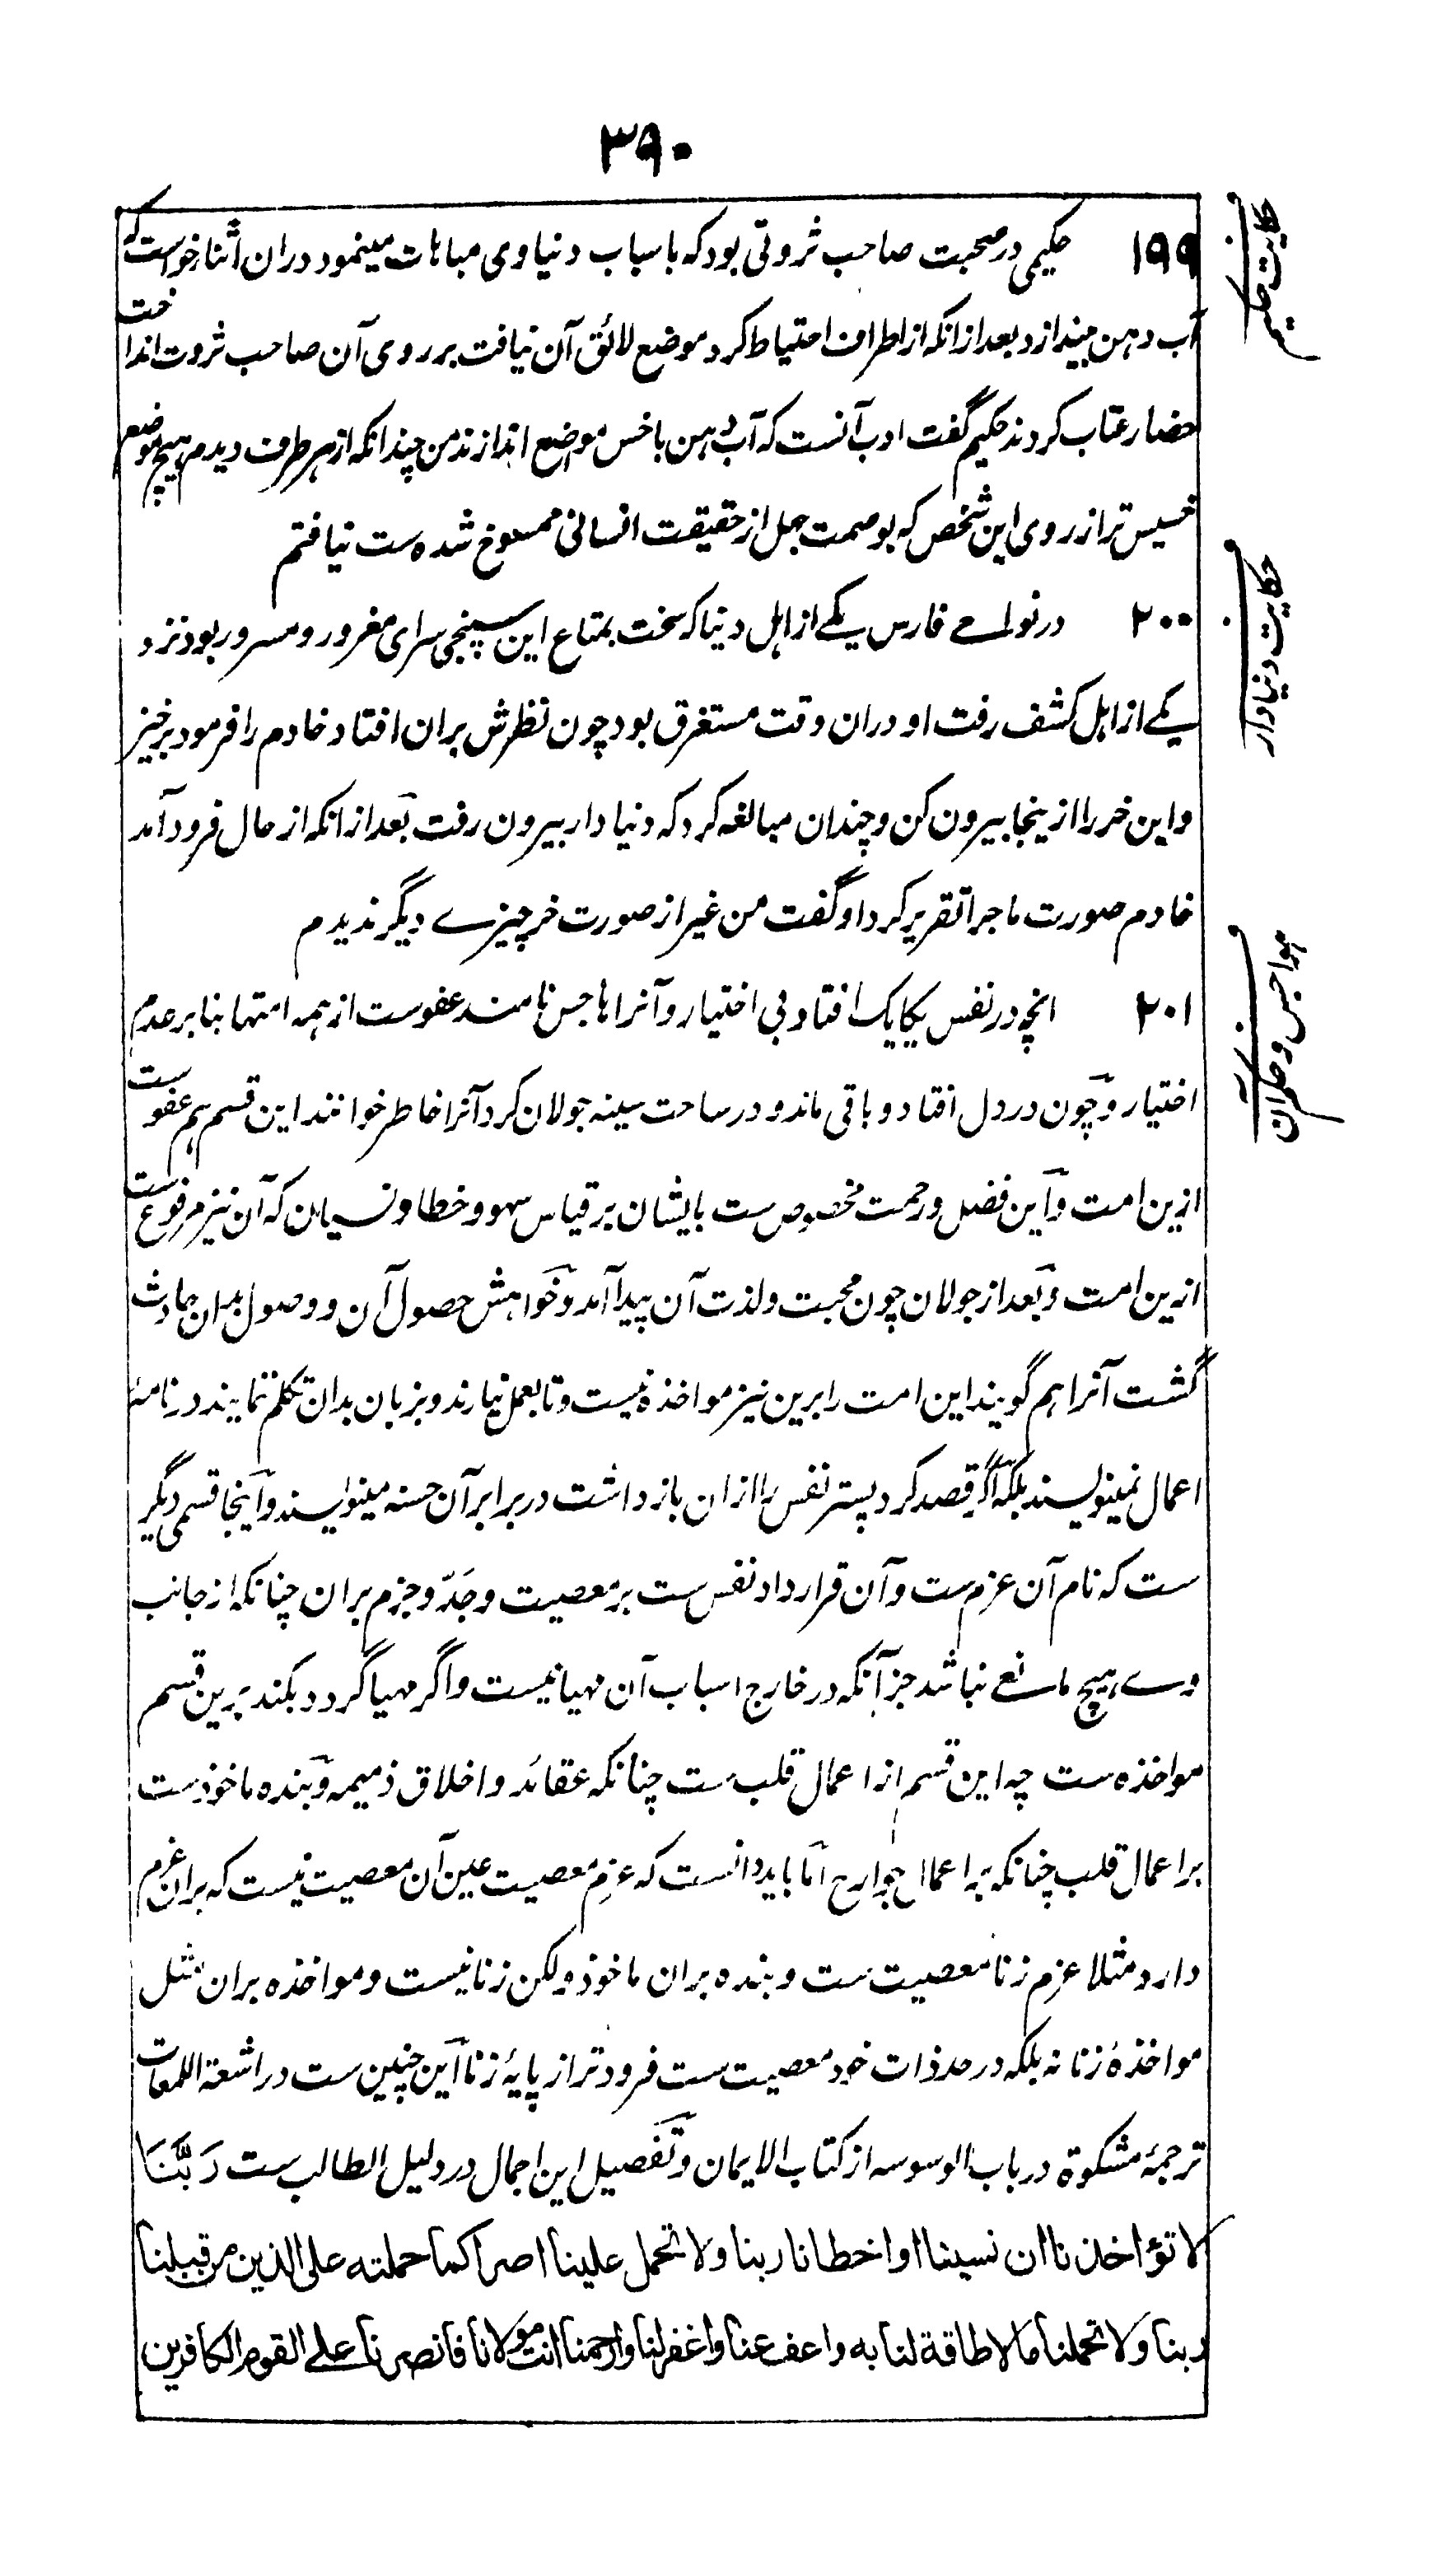 ۳۹۰
۱۹۹ حکیمی در صحبت صاحب ثروتی بود که باسباب دنیاوی مباهات مینمود دران اثنا خواست که
آب دهن بیندازد بعد ازانکه از اطراف احتیاط کرد موضع لائق آن نیافت بر روی آن صاحب ثروت انداخت
حضار عتاب کردند حکیم گفت ادب آنست که آب دهن باخس مواضع اندازند من چندانکه از هر طرف دیدم هیچ موضع
خسیس تر از روی این شخص که بوصمت جهل از حقیقت انسانی ممسوخ شده ست نیافتم
۲۰۰ در نواحے فارس یکے از اهل دنیا که سخت بمتاع این سپنجی سرای مغرور و مسرور بود نزد
یکے از اهل کشف رفت او دران وقت مستغرق بود چون نظرش بران افتاد خادم را فرمود برخیز
و این خر را ازینجا بیرون کن و چندان مبالغه کرد که دنیادار بیرون رفت بعد ازانکه از حال فرود آمد
خادم صورت ماجرا تقریر کرد او گفت من غیر از صورت خر چیزے دیگر ندیدم
۲۰۱ انچه در نفس یکایک افتاد بی اختیار و آنرا هاجس نامند عفوست از همه امتها بنا بر عدم
اختیار و چون در دل افتاد و باقی ماند و در ساحت سینه جولان کرد آنرا خاطر خوانند این قسم هم عفوست
ازین امت و این فضل و رحمت مخصوص ست بایشان بر قیاس سهو و خطا و نسیان که آن نیز مرفوع ست
ازین امت و بعد از جولان چون محبت و لذت آن پیدا آمد و خواهش حصول آن و وصول بدان حادث
گشت آنرا هم گویند این امت را برین نیز مواخذه نیست و تا بعمل نیارند و بزبان بدان تکلم ننمایند در نامه
اعمال نمینویسند بلکه اگر قصد کرد پستر نفس را ازان باز داشت در برابر آن حسنه مینویسند و اینجا قسمی دیگر
ست که نام آن عزم ست و آن قرارداد نفس ست بر معصیت و جدّ و جزم بران چنانکه از جانب
وے هیچ مانع نباشد جز آنکه در خارج اسباب آن مهیا نیست و اگر مهیا گردد بکند برین قسم
مواخذه ست چه این قسم از اعمال قلب ست چنانکه عقائد و اخلاق ذمیمه و بنده ماخوذ ست
بر اعمال قلب چنانکه بر اعمال جوارح اما باید دانست که عزم معصیت عین آن معصیت نیست که بران عزم
دارد مثلا عزم زنا معصیت ست و بنده بران ماخوذ ولکن زنا نیست و مواخذه بران مثل
مواخذهٔ زنا نه بلکه در حد ذات خود معصیت ست فرودتر از پایهٔ زنا این چنین ست در اشعة اللمعات
ترجمهٔ مشکوة در باب الوسوسه از کتاب الایمان و تفصیل این اجمال در دلیل الطالب ست رَبَّنَا
لا تؤاخذنا ان نسینا او اخطانا ربنا ولا تحمل علینا اصرا کما حملته علی الذین من قبلنا
ربنا ولا تحملنا ما لا طاقة لنا به واعف عنا واغفر لنا وارحمنا انت مولانا فانصرنا علے القوم الکافرین
حکایت دنیادار